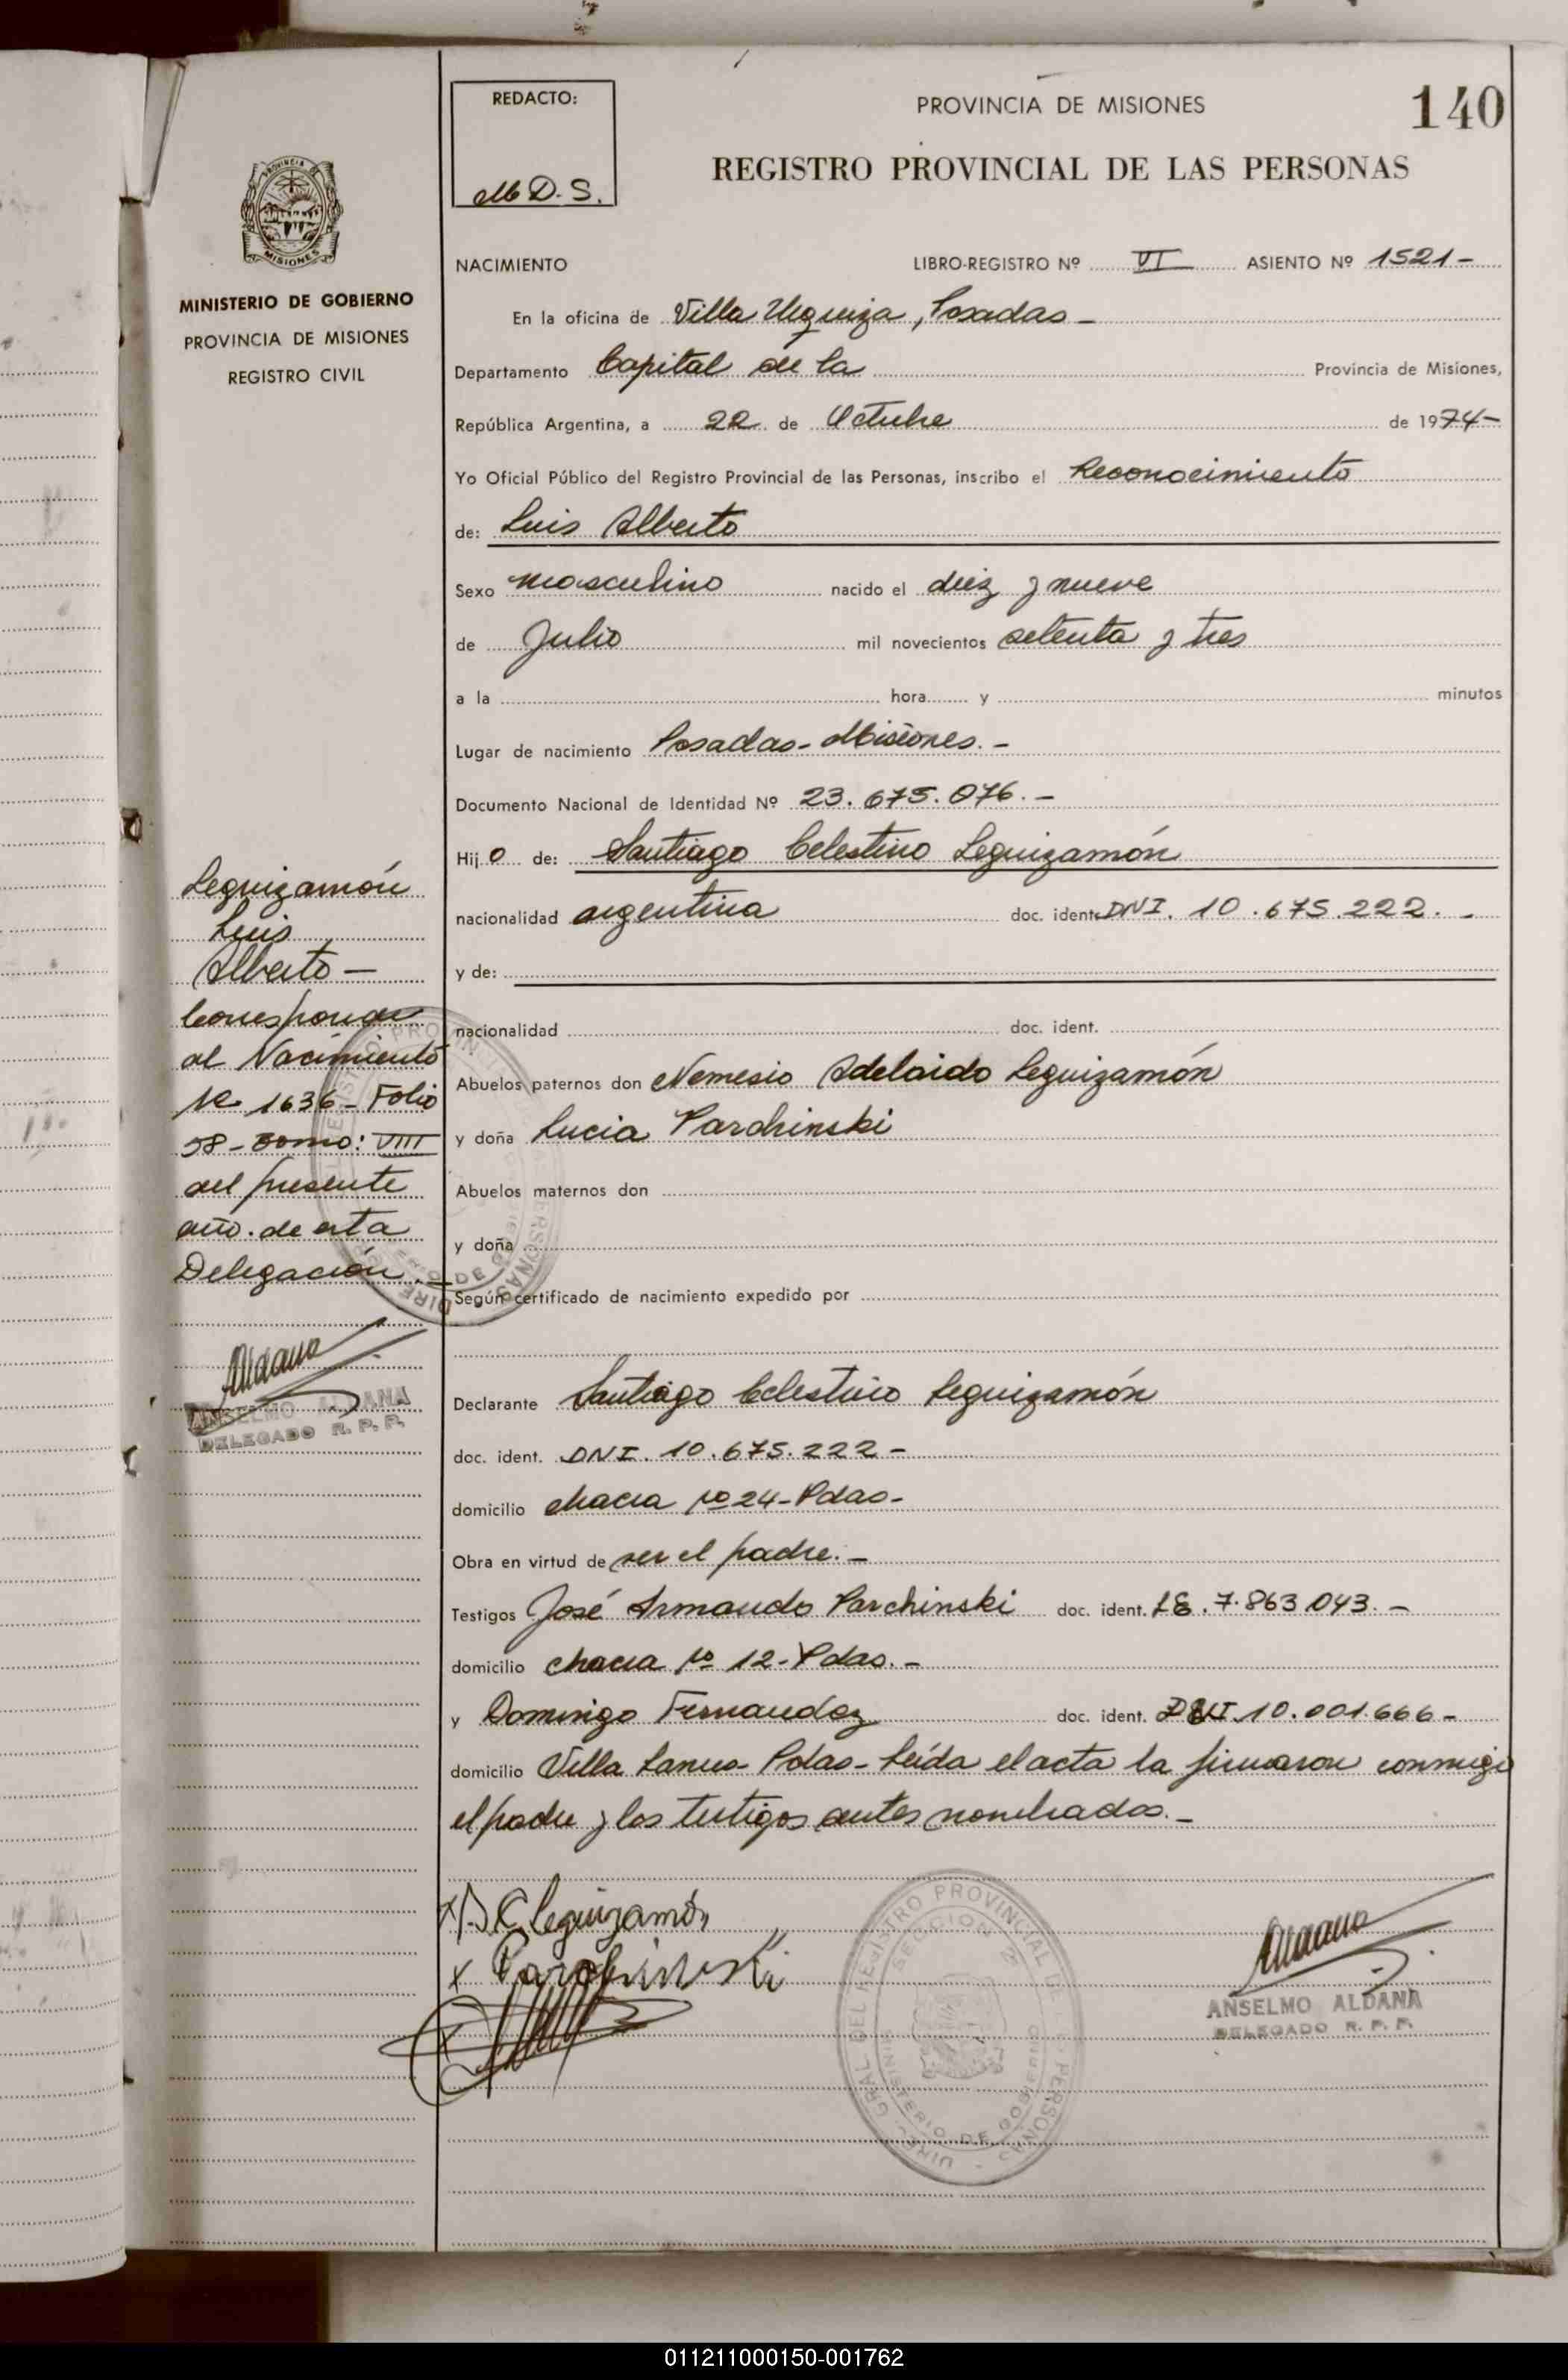 REDACTO:
M D. S.
PROVINCIA DE MISIONES
140
REGISTRO PROVINCIAL DE LAS PERSONAS
PROVINCIA
MISIONES
MINISTERIO DE GOBIERNO
PROVINCIA DE MISIONES
REGISTRO CIVIL
NACIMIENTO LIBRO-REGISTRO Nº VI ASIENTO Nº 1521-
En la oficina de Villa Urquiza, Posadas-
Departamento Capital de la Provincia de Misiones,
República Argentina, a 22 de Octubre de 1974-
Yo Oficial Público del Registro Provincial de las Personas, inscribo el Reconocimiento
de: Luis Alberto
Sexo masculino nacido el diez y nueve
de Julio mil novecientos setenta y tres
a la hora y minutos
Lugar de nacimiento Posadas-Misiones.-
Documento Nacional de Identidad Nº 23.675.076.-
Hijo de: Santiago Celestino Leguizamón
nacionalidad argentina doc. ident. DNI. 10.675.222.-
y de:
nacionalidad doc. ident.
Abuelos paternos don Nemesio Adelaido Leguizamón
y doña Lucia Parchinski
Abuelos maternos don
y doña
Según certificado de nacimiento expedido por
Declarante Santiago Celestino Leguizamón
doc. ident. DNI. 10.675.222-
domicilio chacra Nº 24-Pdas-
Obra en virtud de ser el padre.-
Testigos José Armando Parchinski doc. ident. LE. 7.863.043.-
domicilio chacra Nº 12-Pdas.-
y Domingo Fernandez doc. ident. DNI. 10.001.666-
domicilio Villa Lanus-Pdas-Leída el acta la firmaron conmigo
el padre y los testigos antes nombrados.-
Leguizamón
Luis
Alberto-
Corresponde
al Nacimiento
Nº 1636-Folio
58-Tomo: VIII
del presente
año de esta
Delegación.-
Aldana
ANSELMO ALDANA
DELEGADO R. P. P.
x S C Leguizamón
x Parchinski
x
DIREC. GRAL. DEL REGISTRO PROVINCIAL DE LAS PERSONAS
SECCION
MINISTERIO DE GOBIERNO
Aldana
ANSELMO ALDANA
DELEGADO R. P. P.
011211000150-001762